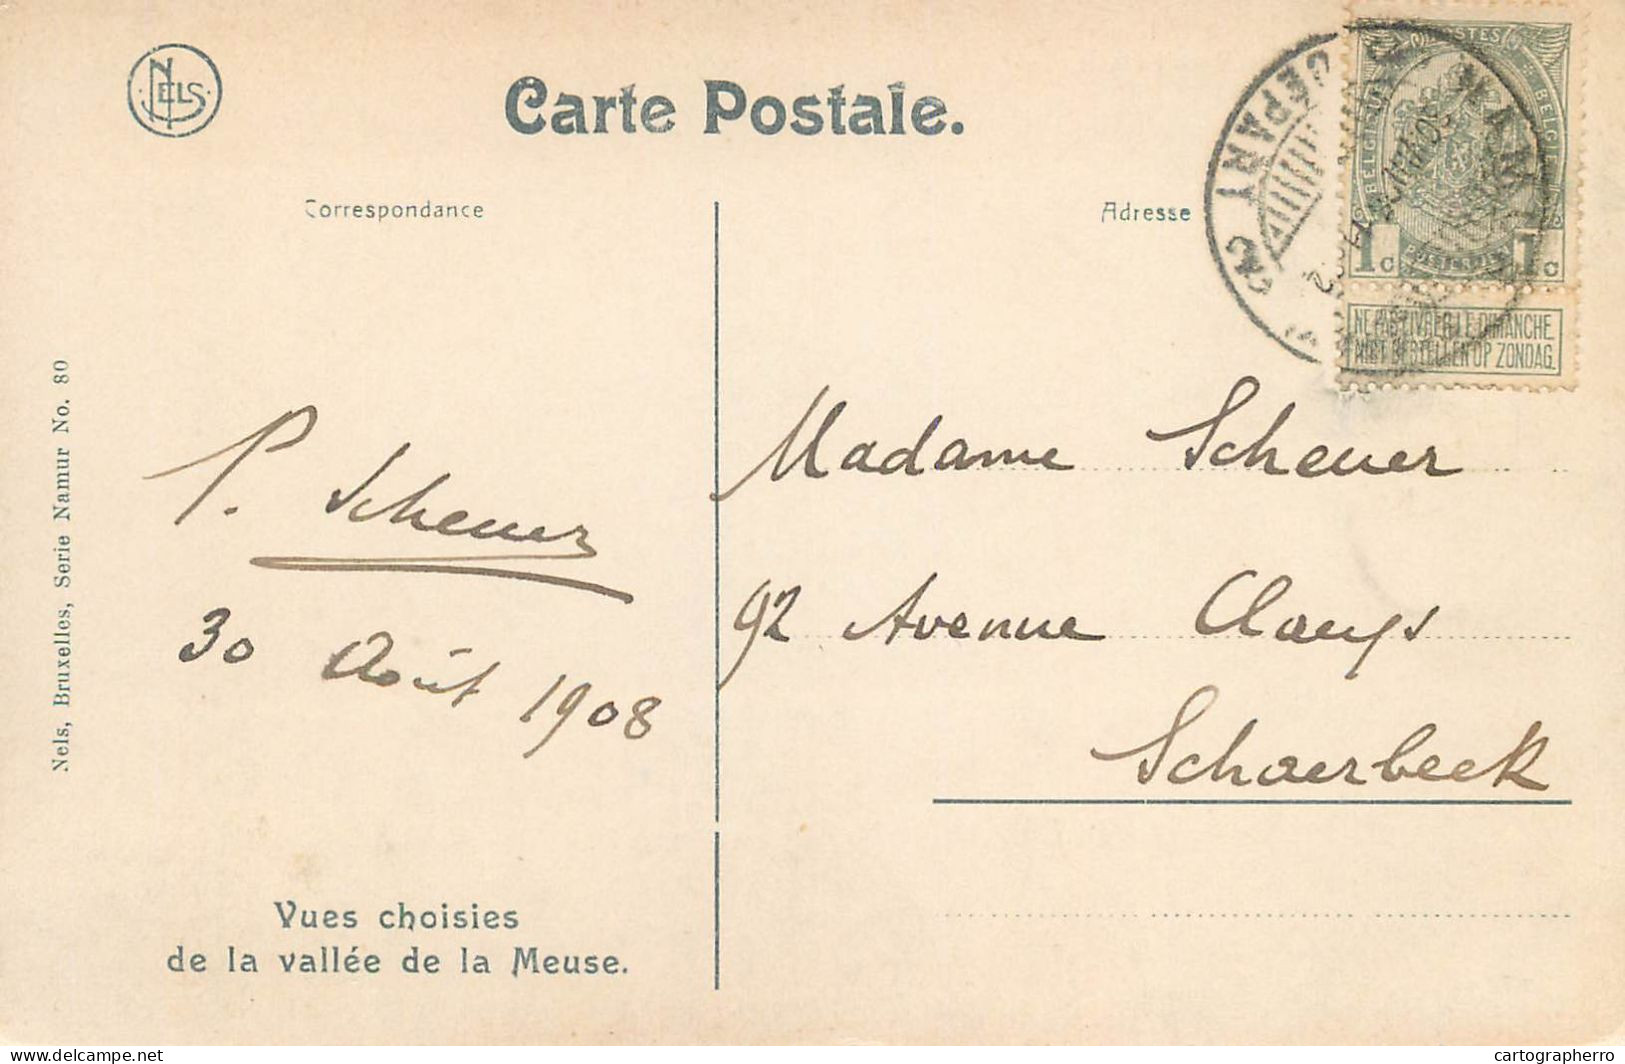 NELS
Carte Postale.
Correspondance
Adresse
POSTES
1c 1c
NE PAS LIVRER LE DIMANCHE
NIET BESTELLEN OP ZONDAG
NAMUR
DEPART
P. Scheuer
30 Août 1908
Madame Scheuer
92 Avenue Clays
Schaerbeek
Nels, Bruxelles, Serie Namur No. 80
Vues choisies
de la vallée de la Meuse.
delcampe.net
cartographerro